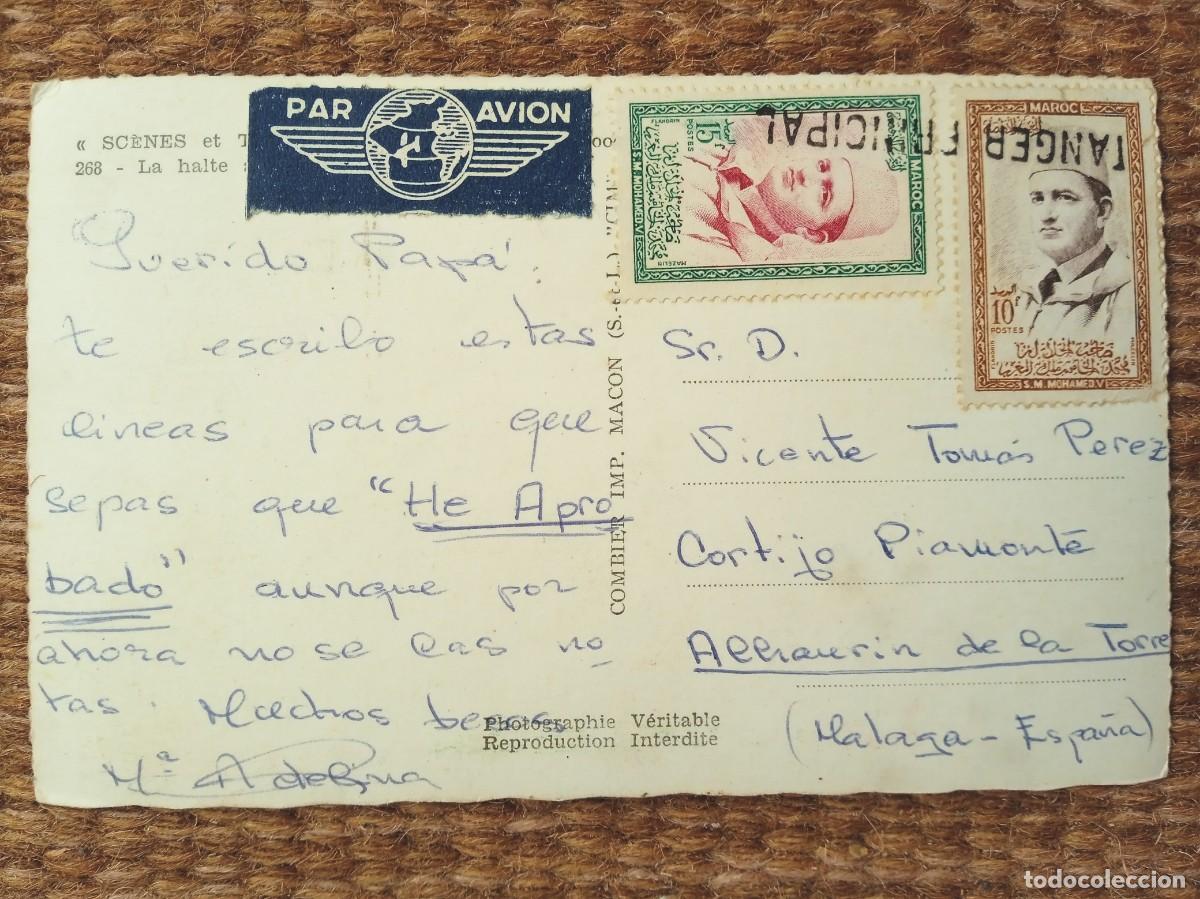 « SCÈNES et T
268 - La halte
PAR AVION
Querido Papá.
te escribo estas
lineas para que
sepas que "He Apro
bado" aunque por
ahora no se las no
tas. Muchos besos
Mª Adelina
COMBIER IMP. MACON (S.-et-L.) "CIM
Photographie Véritable
Reproduction Interdite
15F
POSTES
MAROC
S.M. MOHAMED.V
FLANDRIN
MAZELIN
MAROC
10F
البريد
POSTES
صاحب الجلالة
محمد الخامس ملك المغرب
S.M. MOHAMED.V
FLANDRIN
MAZELIN
TANGER PRINCIPAL
Sr. D.
Vicente Tomás Perez
Cortijo Piamonte
Alhaurin de la Torre
(Malaga - España)
todocoleccion